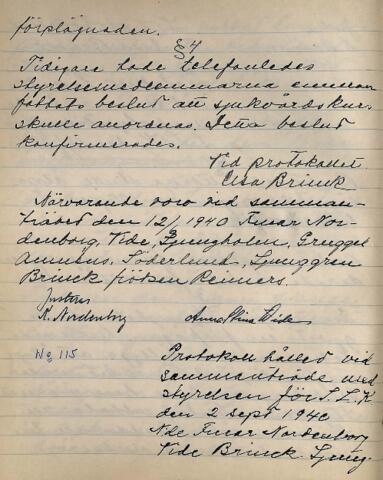 förplägnaden.
§ 4
Tidigare hade telefonledes
styrelsemedlemmarna emman
fattats beslut att sjukvårdskurs
skulle anordnas. Detta beslut
konfirmerades.
Vid protokollet
Elsa Brinck
Närvarande voro vid samman-
trädet den 12/ 1940 Fruar Nor-
denborg, Vide, Ljungholm, Gruggel
Söderlund, Ljunggren
Brinck fröken Reimers.
Justeras
K. Nordenborg Anna Stina Vide
No 115
Protokoll hållet vid
sammanträde med
styrelsen för S. L. K.
den 2 sept 1940
Nde Fruar Nordenborg
Vide Brinck. Ljung-